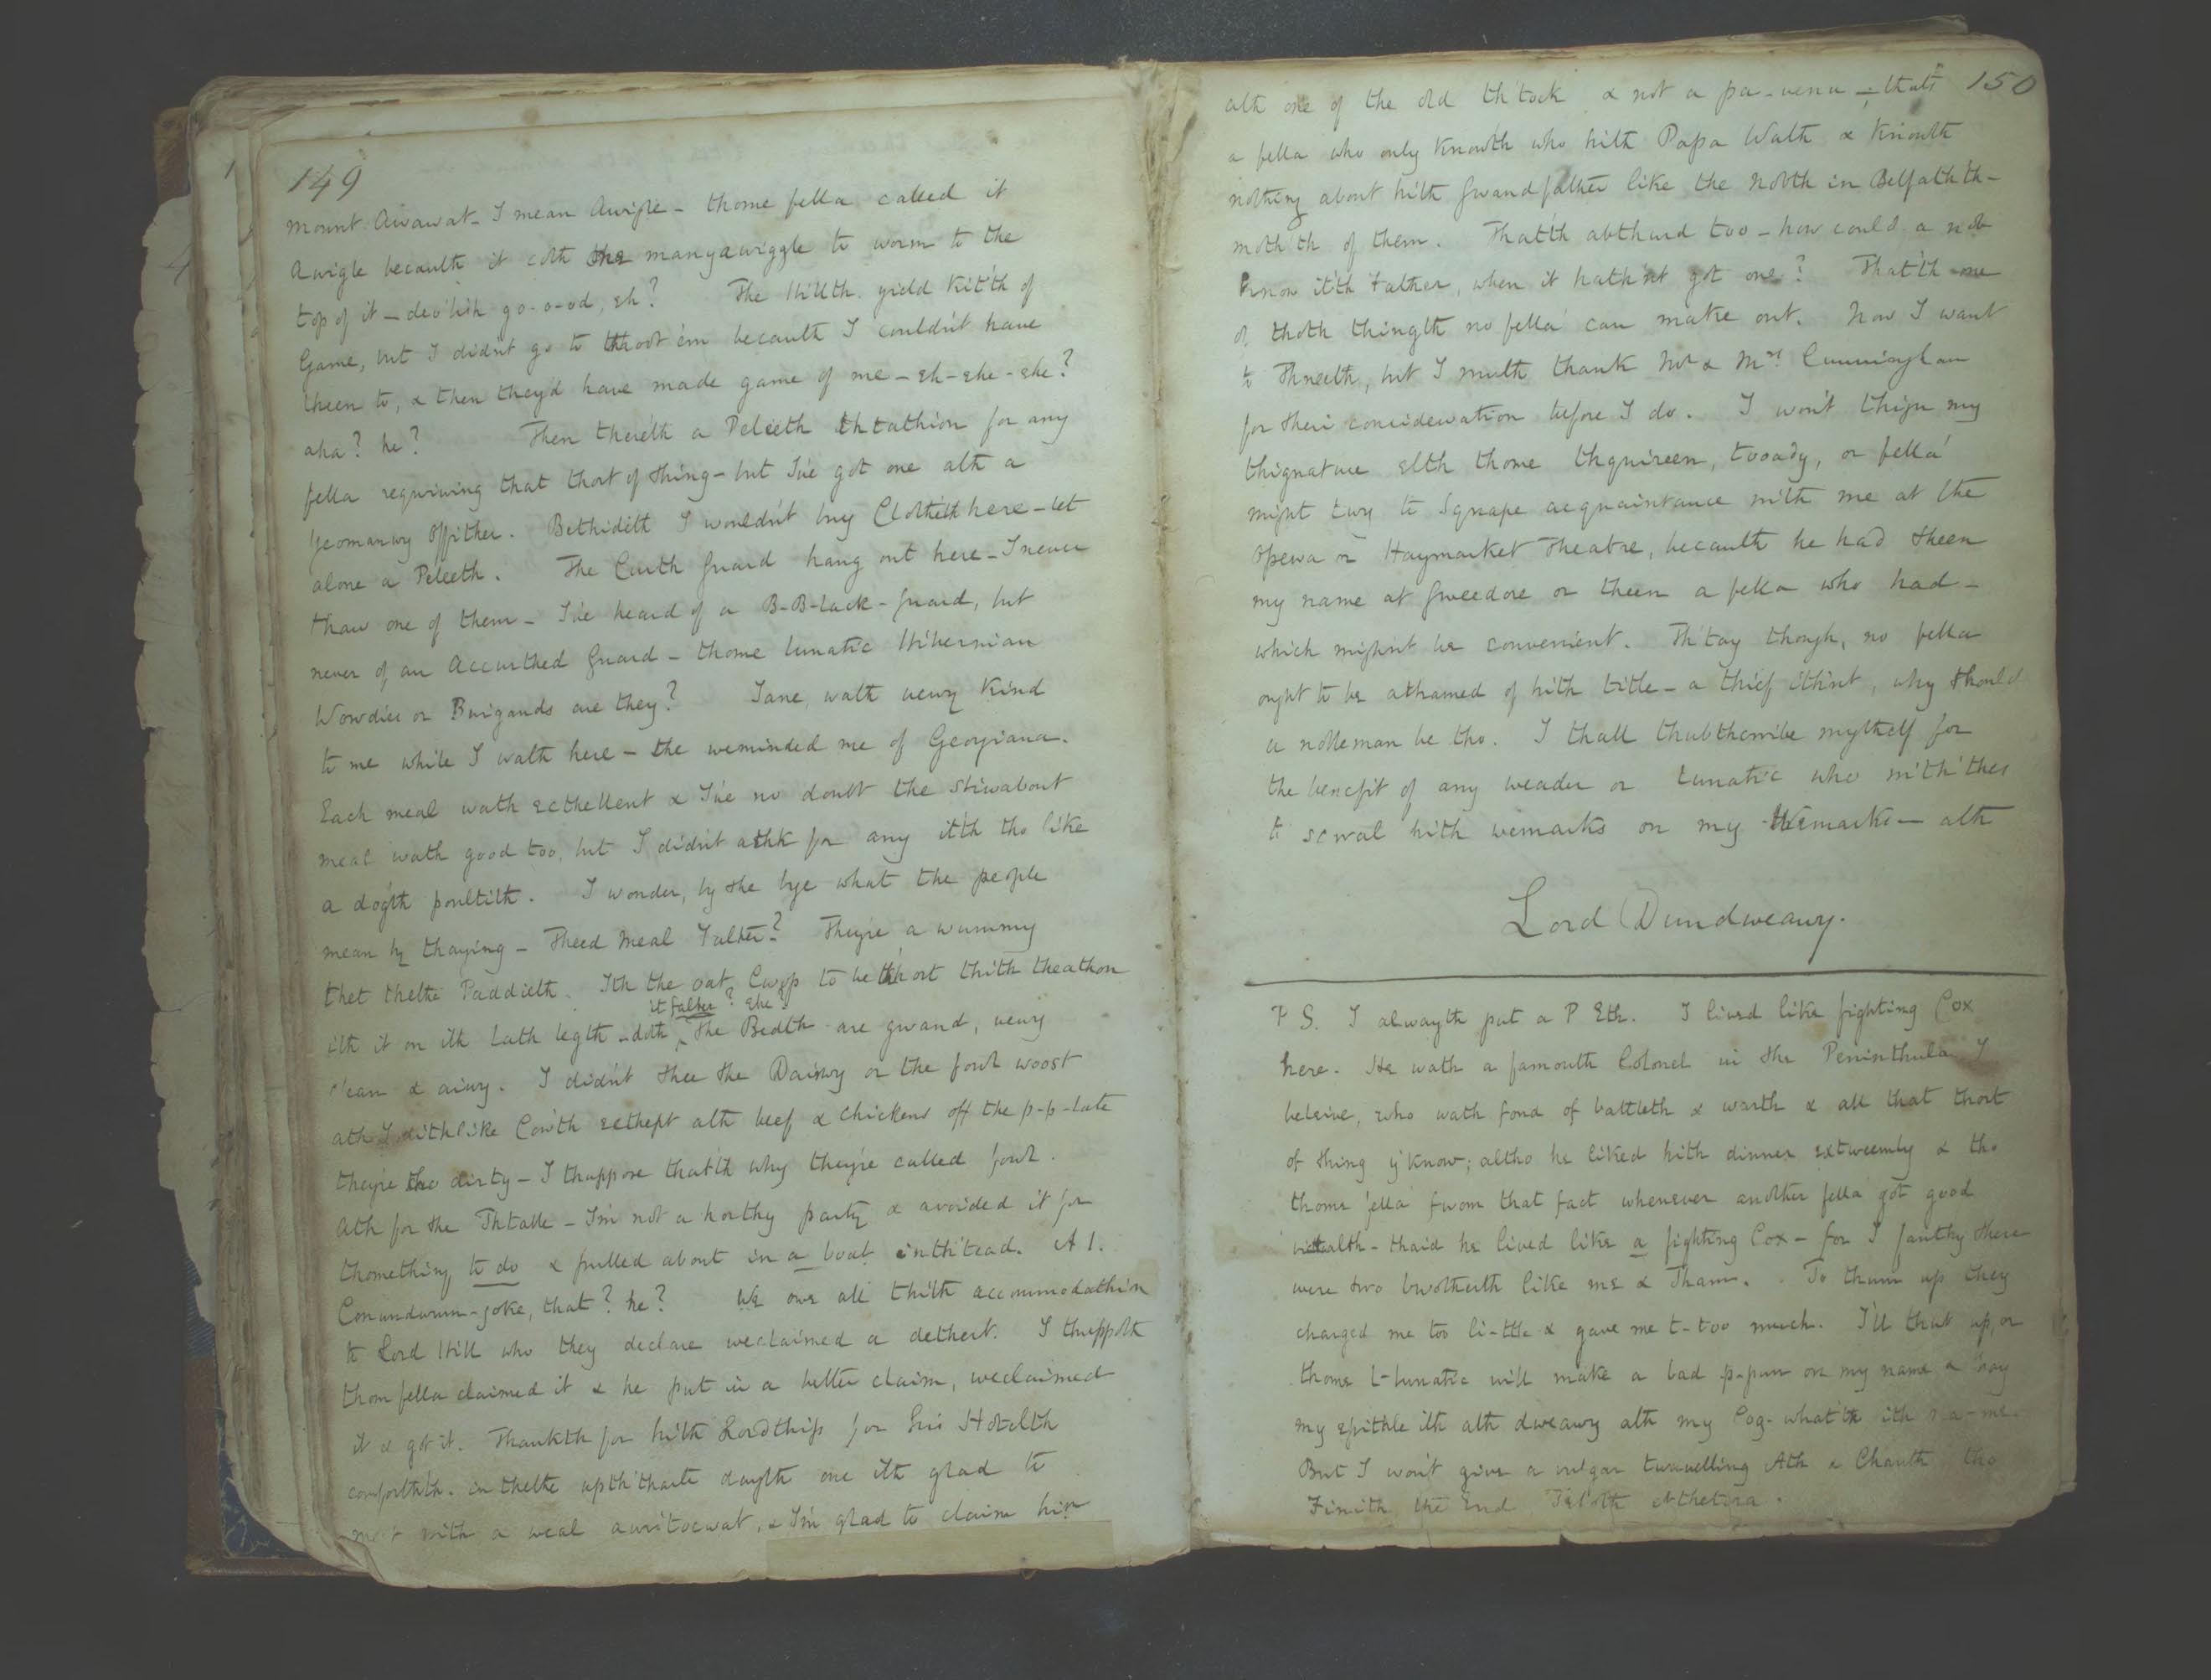 149
Mount Awawat - I mean Awigle - thome fella called it
Awigle becauth it coth one many a wiggle to worm to the
top of it - dev'lish go-o-od, eh? The Hillth yield Kitth of
Game, but I didn't go to thoot 'em becauth I couldn't have
theen to, & then they'd have made game of me - eh - ehe - ehe?
aha? he? Then there'th a Peleeth thtathion for any
fella requiwing that thort of thing - but I've got one ath a
Yeomanwy Offither. Bethideth I wouldn't buy Clotheth here - let
alone a Peleeth. The Curth Guard hang out here - I never
thaw one of them - I've heard of a B-B-lack-guard, but
never of an Accurthed Guard - thome lunatic Hibernian
Wowdies or Bwigands are they? Jane wath vewy kind
to me while I wath here - the weminded me of Georgiana.
Each meal wath ecthellent & I've no doubt the stiwabout
meal wath good too, but I didn't athk for any it'th tho like
a dog'th poultith. I wonder, by the bye what the people
mean by thaying - Theed Meal Falter? They're a wummy
thet thethe Paddieth. Ith the oat Cwop to be thort thith theathon
it falter? ehe?
ith it on ith lath legth - doth The Bedth are gwand, vewy
clean & aiwy. I didn't thee the Daiwy or the fowl woost
ath I dithlike Cowth ecthept ath beef & chickens off the p-p-late
they're tho dirty - I thuppose that'th why they're called fowl.
Ath for the Thtable - I'm not a horthy party & avoided it for
thomething to do & pulled about in a boat inthtead. A 1.
Conundwum-joke, that? he? We owe all thith accommodathion
to Lord Hill who they declare weclaimed a dethert. I thuppoth
thom fella claimed it & he put in a better claim, weclaimed
it & got it. Thankth for hith Lordthip for his Hotelth
comforth. in thethe upthtarte dayth one ith glad to
meet with a weal awitocwat, & I'm glad to claim him
150
ath one of the old thtock & not a pa-venu - that'
a fella who only knowth who hith Papa Wath & knowth
nothing about hith Gwandfather like the Nobth in Belfathth -
moth'th of them. That'th abthurd too - how could a nob
know it'th Father, when it hathn't got one? That'th one
of thoth thingth no fella can make out. Now I want
to Thneeth, but I muth thank Mr & Mrs Cunningham
for their considewation before I do. I won't thign my
thignature elth thome thquireen, tooady, or fella'
might twy to Sqwape acquaintance with me at the
Opewa or Haymarket Theatre, becauth he had theen
my name at Gweedore or theen a fella who had -
which mighn't be convenient. Thtay though, no fella
ought to be athamed of hith title - a thief ithn't, why should
a nobleman be tho. I thall thubthcwibe mythelf for
the benefit of any weader or Lunatic who withthes
to scwal hith wemarks on my Wemarks - ath
Lord Dundweawy.
P S. I alwayth put a P Eth. I lived like fighting Cox
here. He wath a famouth Colonel in the Peninthula I
beleive, who wath fond of battleth & warth & all that thort
of thing y'know; altho he liked hith dinner extweemly & tho
thome fella fwom that fact whenever another fella got good
victualth - thaid he lived like a fighting Cox - for I fanthy there
were two bwotherth like me & Tham. To thum up they
charged me too li-ttle & gave me t-too much. I'll thut up, or
thome L-lunatic will make a bad p-pun on my name & thay
my epithle ith ath dweawy ath my Cog-what'th ith na-me.
But I won't give a vulgar twavelling Ath a Chanth tho
Finith the End ethetera.